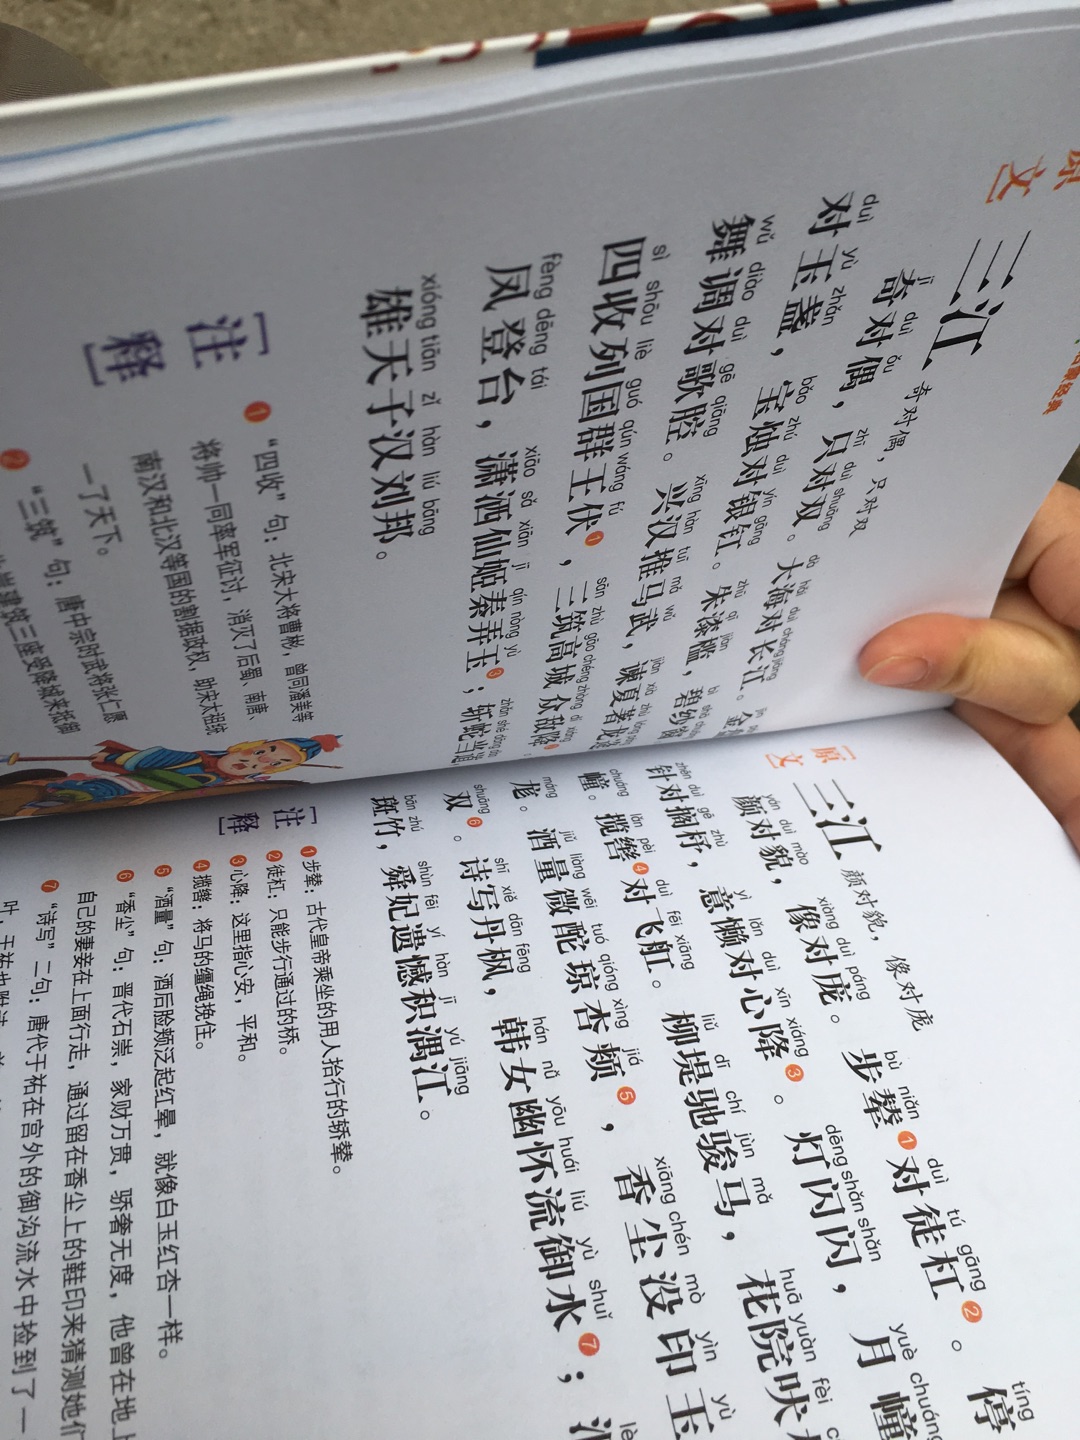 原文
三江 奇对偶，只对双
jī duì ǒu zhī duì shuāng dà hǎi duì cháng jiāng
奇对偶，只对双。大海对长江。金
duì yù zhǎn bǎo zhú duì yín gāng zhū qī jiàn
对玉盏，宝烛对银釭。朱漆槛，碧纱
wǔ diào duì gē qiāng xīng hàn tuī mǎ wǔ
舞调对歌腔。兴汉推马武，谏夏著龙
sì shōu liè guó qún wáng fú sān zhù gāo chéng zhòng dí xiáng
四收列国群王伏❶，三筑高城众敌降❷；
fèng dēng tái xiāo sǎ xiān jī qín nòng yù
凤登台，潇洒仙姬秦弄玉❸；斩蛇当道
xióng tiān zǐ hàn liú bāng
雄天子汉刘邦。
注释
❶“四收”句：北宋大将曹彬，曾同潘美等
将帅一同率军征讨，消灭了后蜀、南唐、
南汉和北汉等国的割据政权，助宋太祖统
一了天下。
❷“三筑”句：唐中宗时武将张仁愿
建筑三座受降城来抵御
原文
三江 颜对貌，像对庞
yán duì mào xiàng duì páng bù niǎn duì tú gāng tíng
颜对貌，像对庞。步辇❶对徒杠❷。停
zhēn duì gē zhù yì lǎn duì xīn xiáng dēng shǎn shǎn yuè chuáng
针对搁杼，意懒对心降❸。灯闪闪，月幢
chuáng lǎn pèi duì fēi xiāng liǔ dī chí jùn mǎ huā yuàn fèi
幢。揽辔❹对飞舡。柳堤驰骏马，花院吠
máng jiǔ liàng wēi tuó qióng xìng jiá xiāng chén mò yìn yù
尨。酒量微酡琼杏颊❺，香尘没印玉
shuāng shī xiě dān fēng hán nǚ yōu huái liú yù shuǐ
双❻。诗写丹枫，韩女幽怀流御水❼；泪
bān zhú shùn fēi yí hàn jī yú jiāng
斑竹，舜妃遗憾积湡江。
注释
❶步辇：古代皇帝乘坐的用人抬行的轿辇。
❷徒杠：只能步行通过的桥。
❸心降：这里指心安，平和。
❹揽辔：将马的缰绳挽住。
❺“酒量”句：酒后脸颊泛起红晕，就像白玉红杏一样。
❻“香尘”句：晋代石崇，家财万贯，骄奢无度，他曾在地上
自己的妻妾在上面行走，通过留在香尘上的鞋印来猜测她们
❼“诗写”二句：唐代于祐在宫外的御沟流水中捡到了一
叶，于祐也附诗